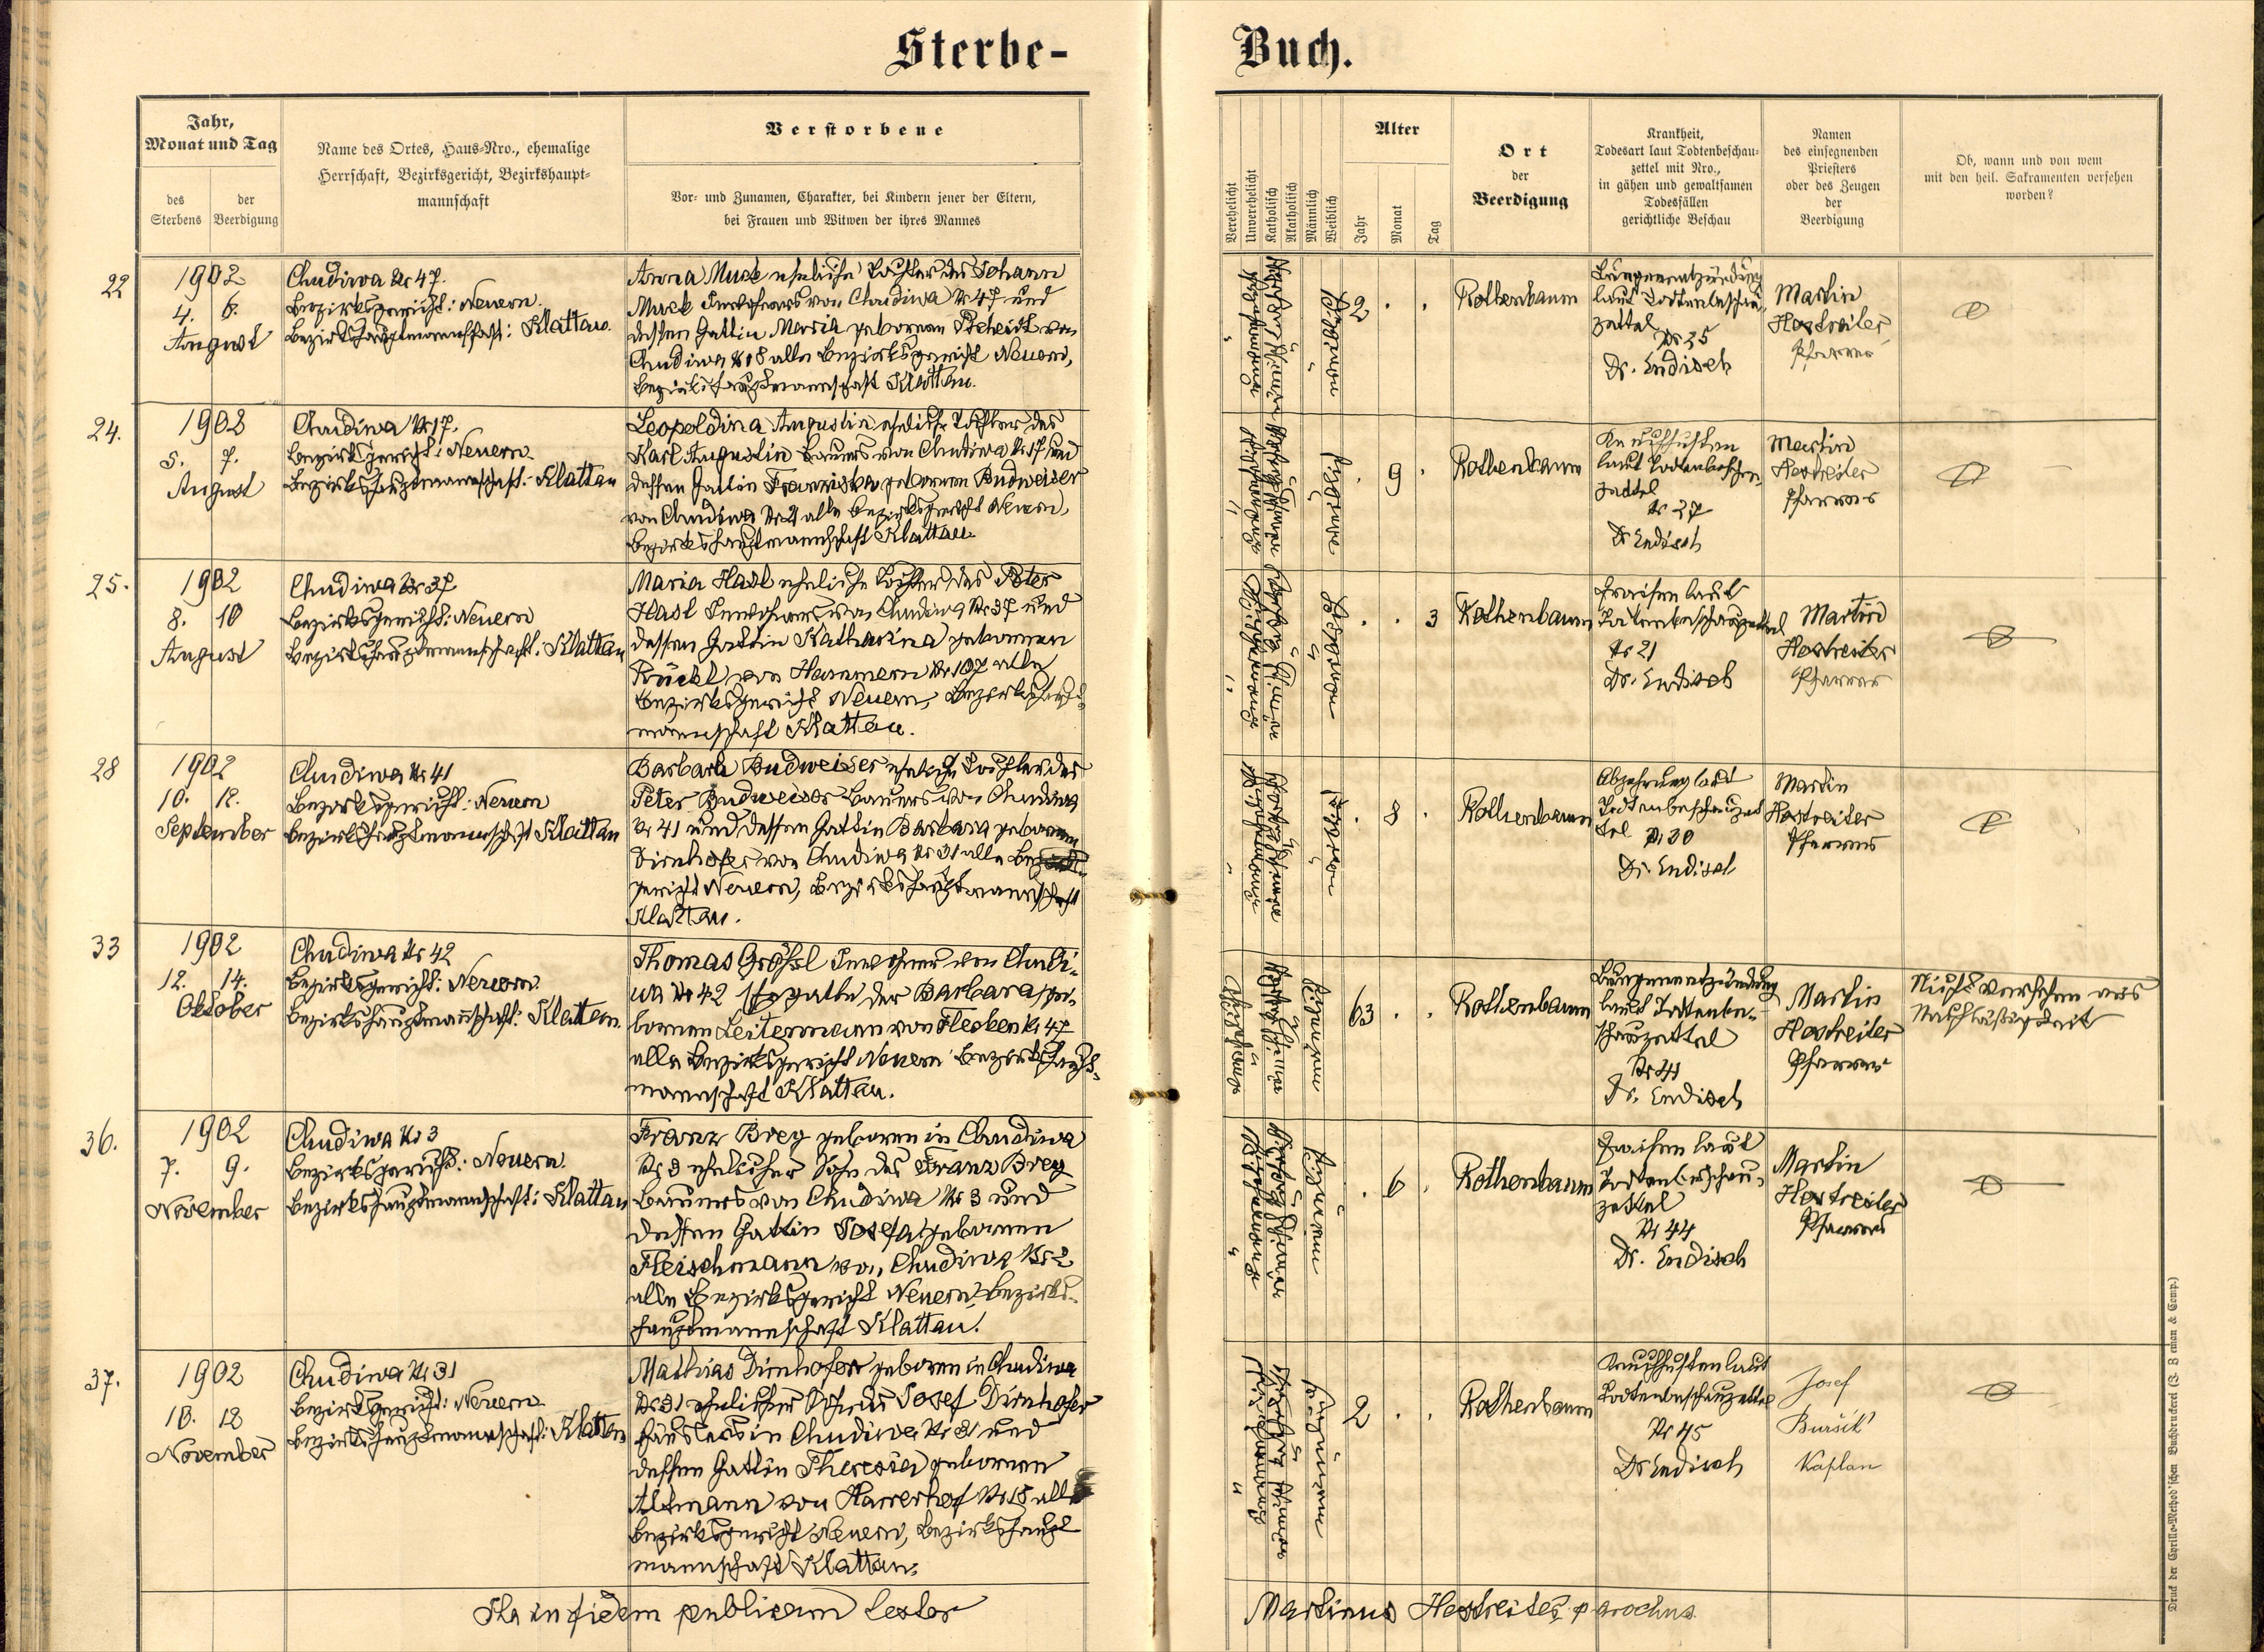 Sterbe-
Buch.
Jahr,
Monat und Tag
des
Sterbens
der
Beerdigung
Name des Ortes, Haus-Nro., ehemalige
Herrschaft, Bezirksgericht, Bezirkshaupt-
mannschaft
Verstorbene
Vor- und Zunamen, Charakter, bei Kindern jener der Eltern,
bei Frauen und Witwen der ihres Mannes
Verehelicht
Unverehelicht
Katholisch
Akatholisch
Männlich
Weiblich
Alter
Jahr
Monat
Tag
Ort
der
Beerdigung
Krankheit,
Todesart laut Todtenbeschau-
zettel mit Nro.,
in gähen und gewaltsamen
Todesfällen
gerichtliche Beschau
Namen
des einsegnenden
Priesters
oder des Zeugen
der
Beerdigung
Ob, wann und von wem
mit den heil. Sakramenten versehen
worden?
22
1902
4. 6.
August
Chudiwa Nr 47.
Bezirksgericht: Neuern.
Bezirkshauptmannschaft: Klattau.
Anna Muck eheliche Tochter des Johann
Muck Inwohners von Chudiwa Nr 47 und
dessen Gattin Maria geborenen von
Chudiwa Nr 8 alle Bezirksgericht Neuern,
Bezirkshauptmannschaft Klattau.
2 . .
Rothenbaum
Lungenentzündung
laut Todtenbeschau-
zettel
Nr 35
Dr. Endisch
Martin
Hostreiter
Pfarrer
24.
1902
5. 7.
August
Chudiwa Nr 17.
Bezirksgericht: Neuern.
Bezirkshauptmannschaft: Klattau
Leopoldina Augustin eheliche Tochter des
Karl Augustin Bauers von Chudiwa Nr 17 und
dessen Gattin Franziska geborenen Budweiser
von Chudiwa alle Bezirksgericht Neuern,
Bezirkshauptmannschaft Klattau.
. 9 .
Rothenbaum
Keuchhusten
laut Todtenbeschau-
zettel
Nr 37
Dr Endisch
Martin
Hostreiter
Pfarrer
25.
1902
8. 10
August
Chudiwa Nr 37
Bezirksgericht: Neuern
Bezirkshauptmannschaft: Klattau
Maria Hasl eheliche Tochter des Peter
Hasl Inwohners von Chudiwa Nr 37 und
dessen Gattin Katharina geborenen
Rückl von Hammern Nr 107 alle
Bezirksgericht Neuern, Bezirkshaupt-
mannschaft Klattau.
. . 3
Rothenbaum
Fraisen laut
Todtenbeschauzettel
Nr 21
Dr. Endisch
Martin
Hostreiter
Pfarrer
28
1902
10. 12.
September
Chudiwa Nr 41
Bezirksgericht: Neuern
Bezirkshauptmannschaft Klattau
Barbara Budweiser eheliche Tochter des
Peter Budweiser Bauers von Chudiwa
Nr 41 und dessen Gattin Barbara geborenen
Dirnhofer von Chudiwa Nr 31 alle Bezirks-
gericht Neuern, Bezirkshauptmannschaft
Klattau.
. 8 .
Rothenbaum
Abzehrung laut
Todtenbeschauzet
tel Nr 30
Dr. Endisch
Martin
Hostreiter
Pfarrer
33
1902
12. 14.
Oktober
Chudiwa Nr 42
Bezirksgericht: Neuern.
Bezirkshauptmannschaft: Klattau.
Thomas Größl Inwohner von Chudi-
wa Nr 42 Ehegatte der Barbara ge-
borenen Leitermann von Flecken Nr 47
alle Bezirksgericht Neuern Bezirkshaupt-
mannschaft Klattau.
63 . .
Rothenbaum
Lungenentzündung
laut Todtenbe-
schauzettel
Nr 41
Dr. Endisch
Martin
Hostreiter
Pfarrer
Nicht versehen aus
Nachlässigkeit
36.
1902
7. 9.
November
Chudiwa Nr 3
Bezirksgericht: Neuern.
Bezirkshauptmannschaft: Klattau
Franz Brey geboren in Chudiwa
Nr 3 ehelicher Sohn des Franz Brey
Bauers von Chudiwa Nr 3 und
dessen Gattin Josefa geborenen
Fleischmann von Chudiwa Nr 2
alle Bezirksgericht Neuern, Bezirks-
hauptmannschaft Klattau.
. 6 .
Rothenbaum
Fraisen laut
Todtenbeschau-
zettel
Nr 44
Dr. Endisch
Martin
Hostreiter
Pfarrer
37.
1902
10. 12
November
Chudiwa Nr 31
Bezirksgericht: Neuern
Bezirkshauptmannschaft: Klattau
Mathias Dirnhofer geboren in Chudiwa
Nr 31 ehelicher Sohn des Josef Dirnhofer
Häuslers in Chudiwa Nr 31 und
dessen Gattin Theresia geborenen
Altmann von Nr 18 alle
Bezirksgericht Neuern, Bezirkshaupt
mannschaft Klattau.
2 . .
Rothenbaum
Keuchhusten laut
Todtenbeschauzettel
Nr 45
Dr Endisch
Josef
Buršík
Kaplan
Ita in fidem publicam testor
Martinus Hostreiter, parochus.
Druck der Cyrillo-Method'schen Buchdruckerei (J. Zeman & Comp.)